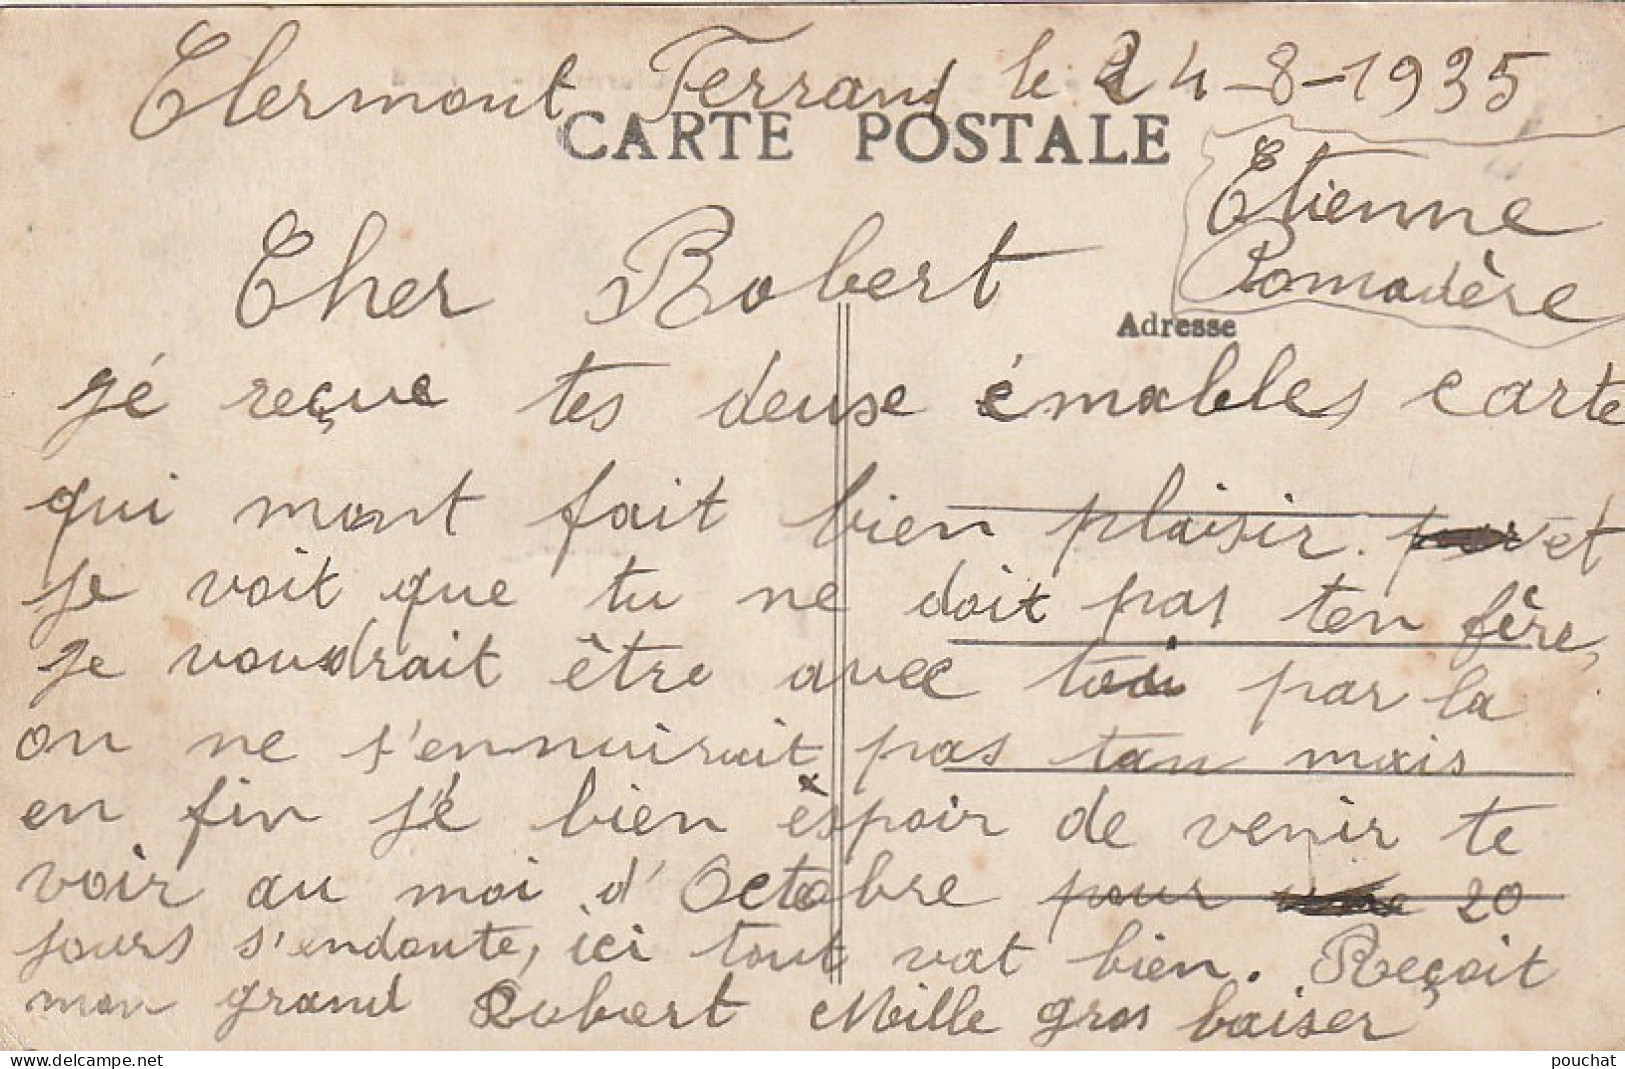 Clermont Ferrand le 24-8-1935
CARTE POSTALE
Etienne
Pomadère
Cher Robert
Adresse
jé reçue tes deuse émables carte
qui mont fait bien plaisir. et
je voit que tu ne doit pas ten fêre,
je voudrait être avec toi par la
on ne s'ennuirait pas tan mais
en fin j'é bien èspoir de venir te
voir au moi d'Octobre pour 20
jours s'endoute, ici tout vat bien. Reçoit
mon grand Robert Mille gros baiser
delcampe.net
pouchat